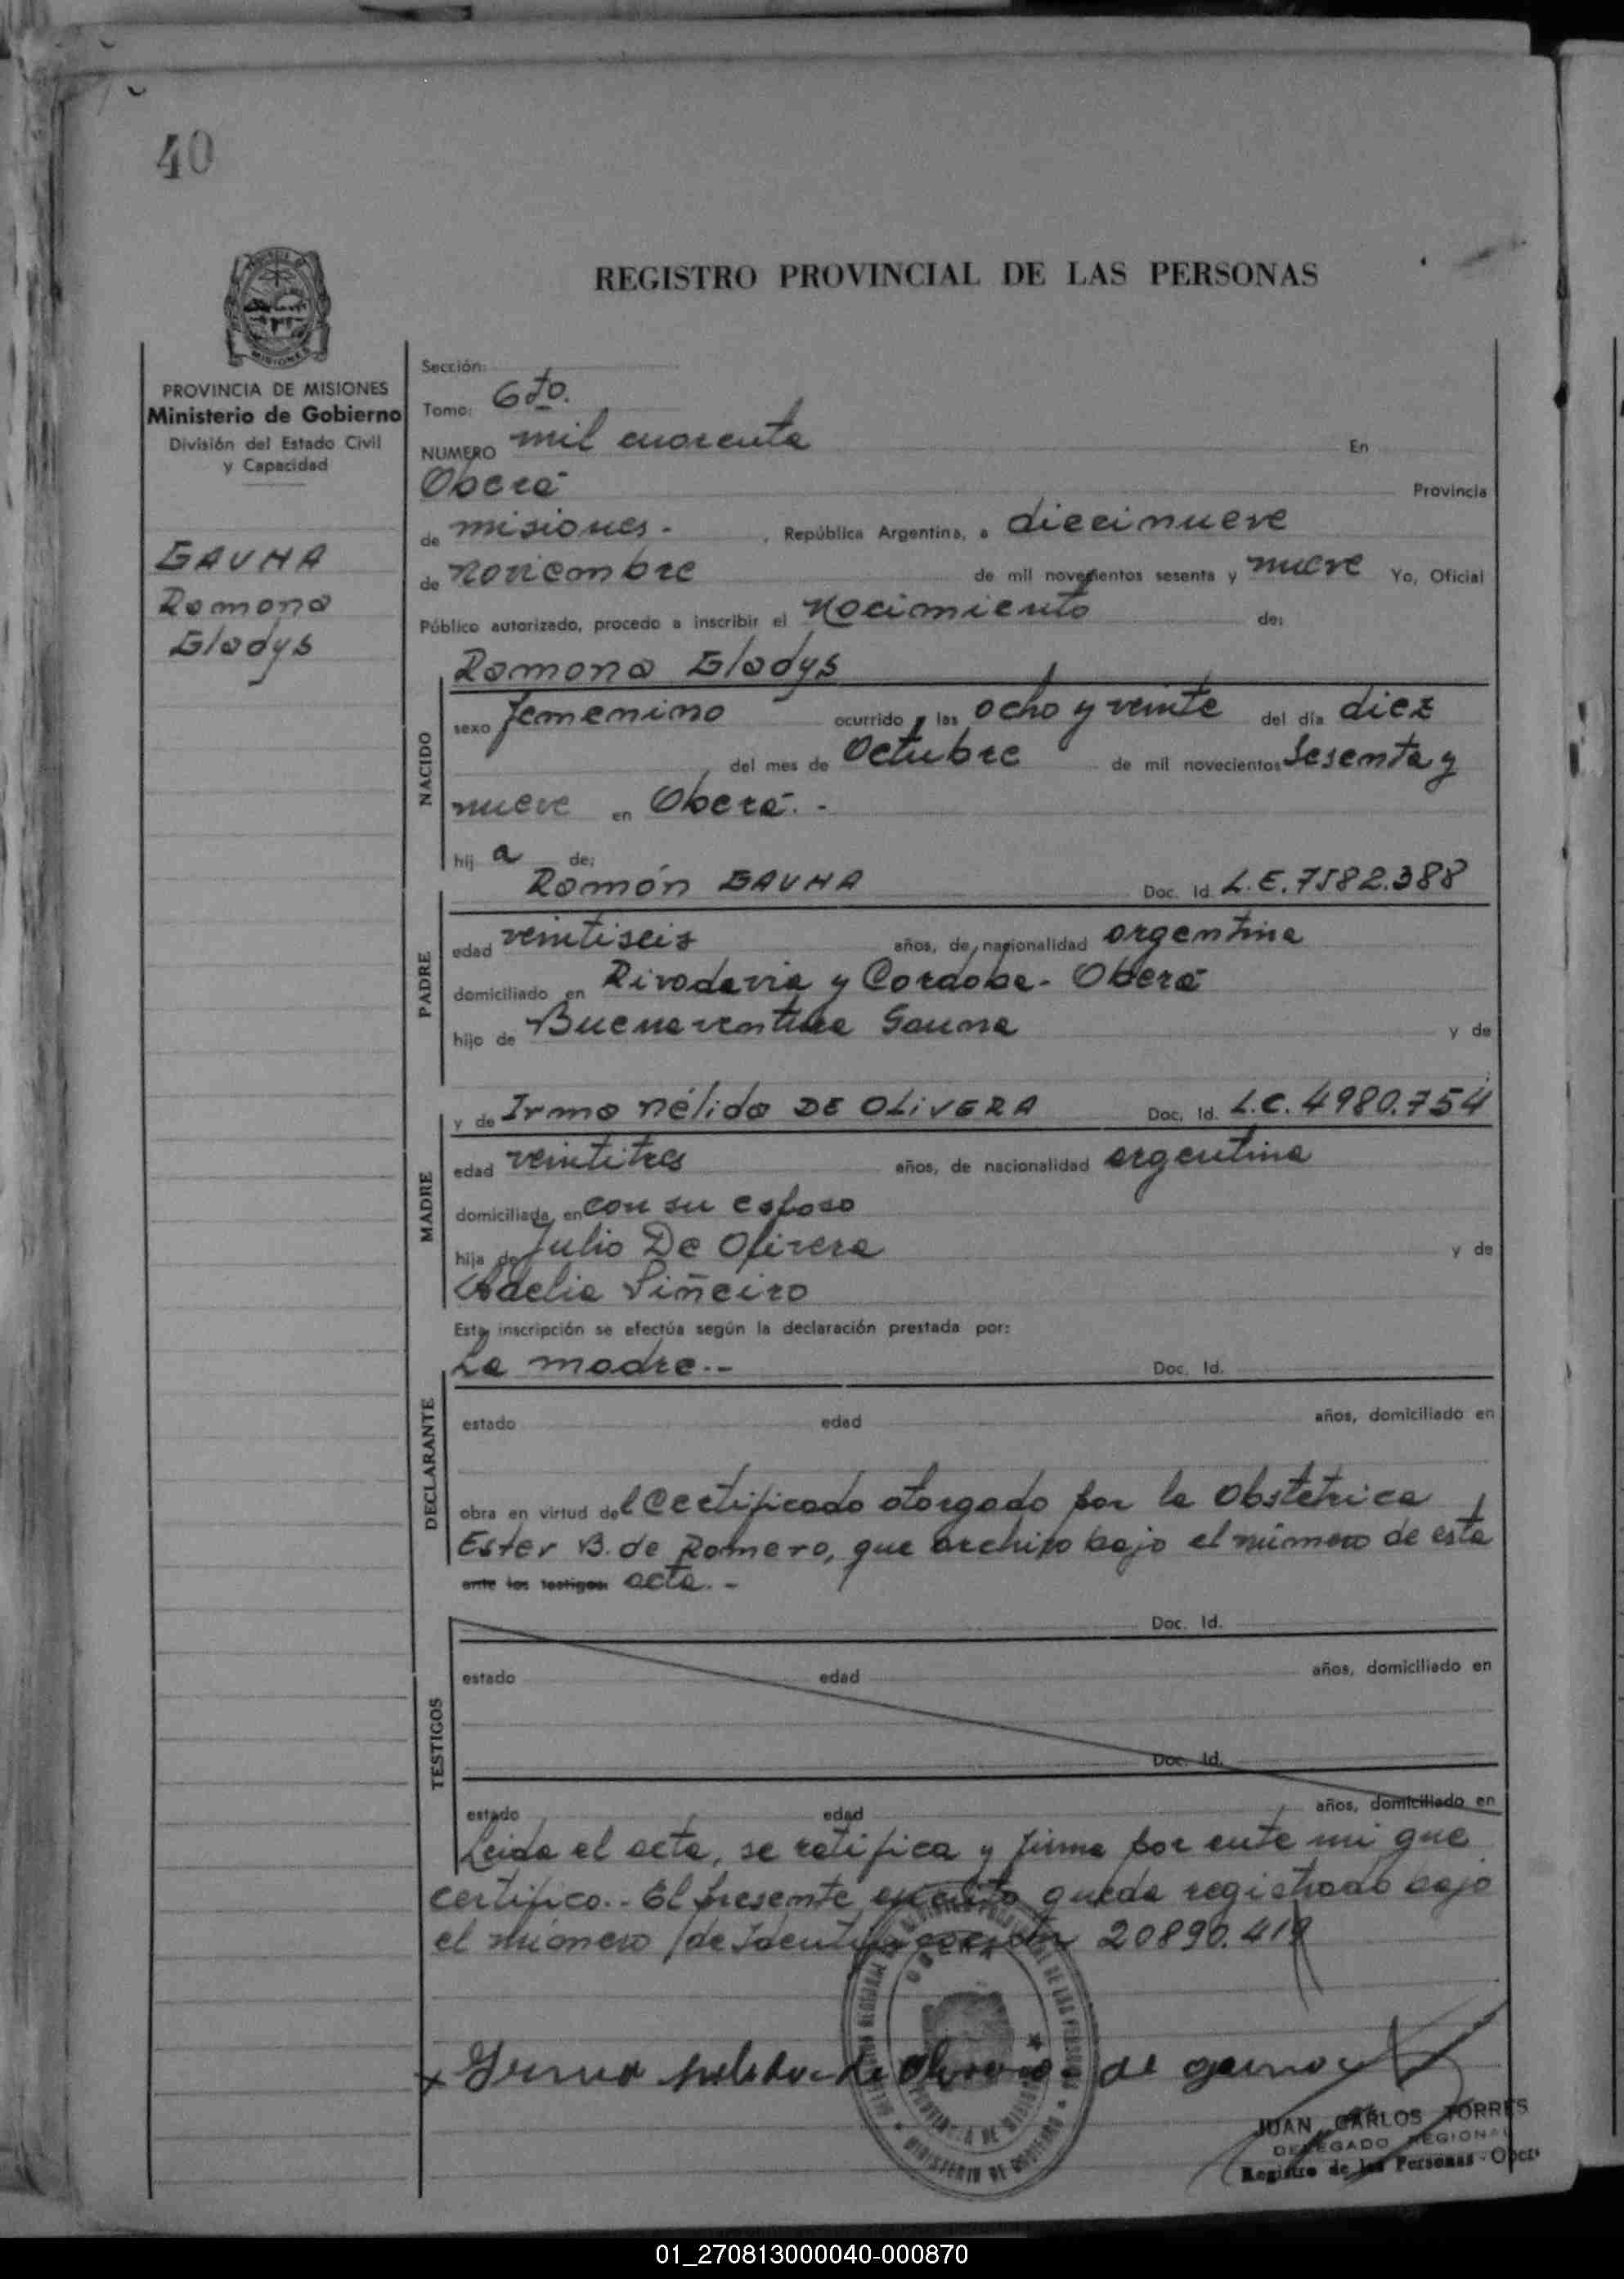 40
REGISTRO PROVINCIAL DE LAS PERSONAS
MISIONES
PROVINCIA DE MISIONES
Ministerio de Gobierno
División del Estado Civil
y Capacidad
GAUNA
Ramona
Gladys
Sección:
Tomo: 6to.
NUMERO mil cuarenta En
Oberá Provincia
de misiones - , República Argentina, a diecinueve
de noviembre de mil novecientos sesenta y nueve Yo, Oficial
Público autorizado, procedo a inscribir el Nacimiento de:
Ramona Gladys
NACIDO
sexo femenino ocurrido a las ocho y veinte del día diez
del mes de Octubre de mil novecientos Sesenta y
nueve en Oberá. -
hij a de:
Ramón GAUNA Doc. Id. L.E. 7582.388
PADRE
edad veintiseis años, de nacionalidad argentina
domiciliado en Rivadavia y Cordoba - Oberá
hijo de Buenaventura Gauna y de
y de Irma Nélida DE OLiVERA Doc. Id. L.C. 4980.754
MADRE
edad veintitres años, de nacionalidad argentina
domiciliada en con su esposo
hija de Julio De Olivera y de
Adelia Piñeiro
Esta inscripción se efectúa según la declaración prestada por:
La madre.-- Doc. Id.
DECLARANTE
estado edad años, domiciliado en
obra en virtud del Certificado otorgado por la Obstetrica
Ester B. de Romero, que archivo bajo el número de esta
ante los testigos: acta. -
Doc. Id.
TESTIGOS
estado edad años, domiciliado en
Doc. Id.
estado edad años, domiciliado en
Leida el acta, se ratifica y firma por ante mi que
certifico.. El presente queda registrado bajo
el número de 20890.419
de gauna
JUAN CARLOS TORRES
DELEGADO REGIONAL
Registro de las Personas - Oberá
MINISTERIO DE GOBIERNO
PROVINCIA DE MISIONES
01_270813000040-000870